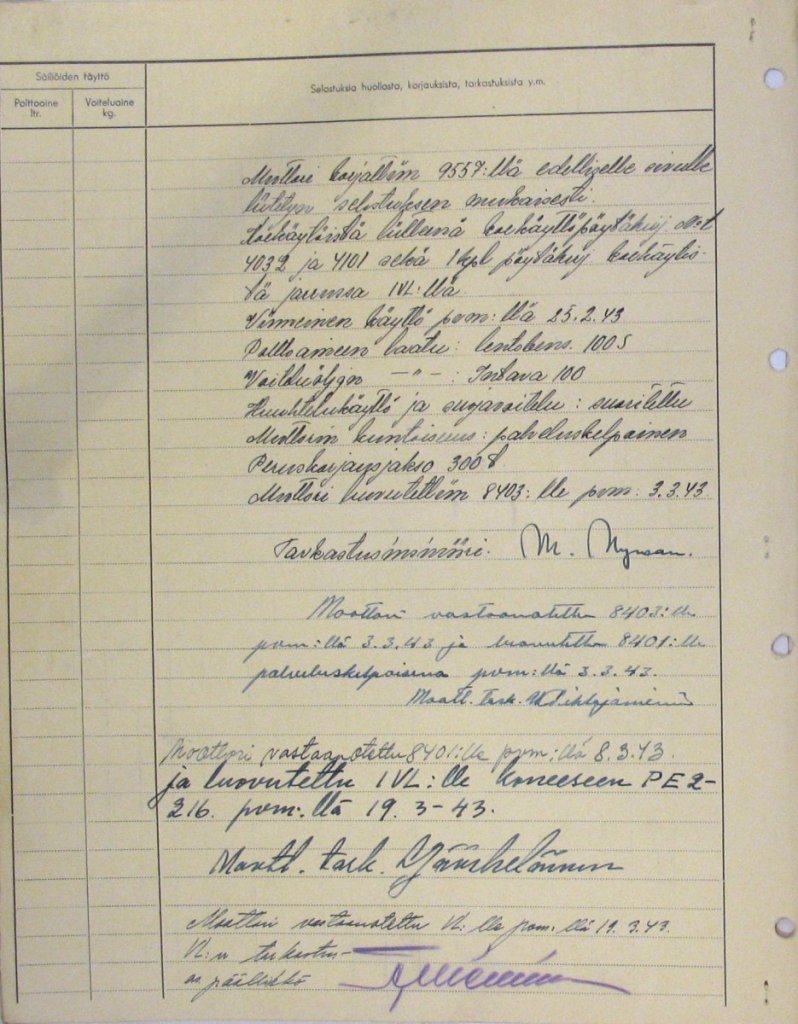 Säiliöiden täyttö
Polttoaine ltr.
Voiteluaine kg.
Selostuksia huollosta, korjauksista, tarkastuksista y.m.
Moottori korjattiin 9557:llä edelliselle sivulle
liitetyn selostuksen mukaisesti.
Koekäytöistä liitteinä koekäyttöpöytäkirj. n:ot
4032 ja 4101 sekä 1 kpl pöytäkirj. koekäytös-
tä jarrussa IVL:llä.
Viimeinen käyttö pvm:llä 25.2.43
Polttoaineen laatu: lentobens. 100 S
Voiteluöljyn —"— : Intava 100
Huuhtelukäyttö ja suojavoitelu: suoritettu
Moottorin kuntoisuus: palveluskelpoinen
Peruskorjausjakso 300 t
Moottori luovutettiin 8403:lle pvm. 3.3.43
Tarkastusinsinööri. M. Nyman.
Moottori vastaanotettu 8403:lle
pvm:llä 3.3.43 ja luovutettu 8401:lle
palveluskelpoisena pvm:llä 3.3.43.
Moott. tark.
Moottori vastaanotettu 8401:lle pvm:llä 8.3.43.
ja luovutettu IVL:lle koneeseen PE2-
216. pvm:llä 19.3-43.
Moott. tark. Jääskeläinen
Moottori vastaanotettu VL:lle pvm:llä 19.3.43.
VL:n tarkastus-
os päällikkö